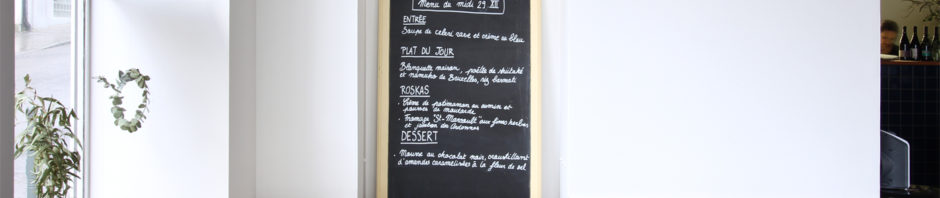 Menu du midi 29.XII
ENTRÉE
Soupe de céleri rave et crème au bleu
PLAT DU JOUR
Blanquette maison, poêlée de shiitaké
et nameko de Bruxelles, riz basmati
ROSKAS
. Crème de potimarron au cumin et
pousses de moutarde
. Fromage "St-Marrault" aux fines herbes
et jambon des Ardennes
DESSERT
. Mousse au chocolat noir, croustillant
d'amandes caramélisées à la fleur de sel